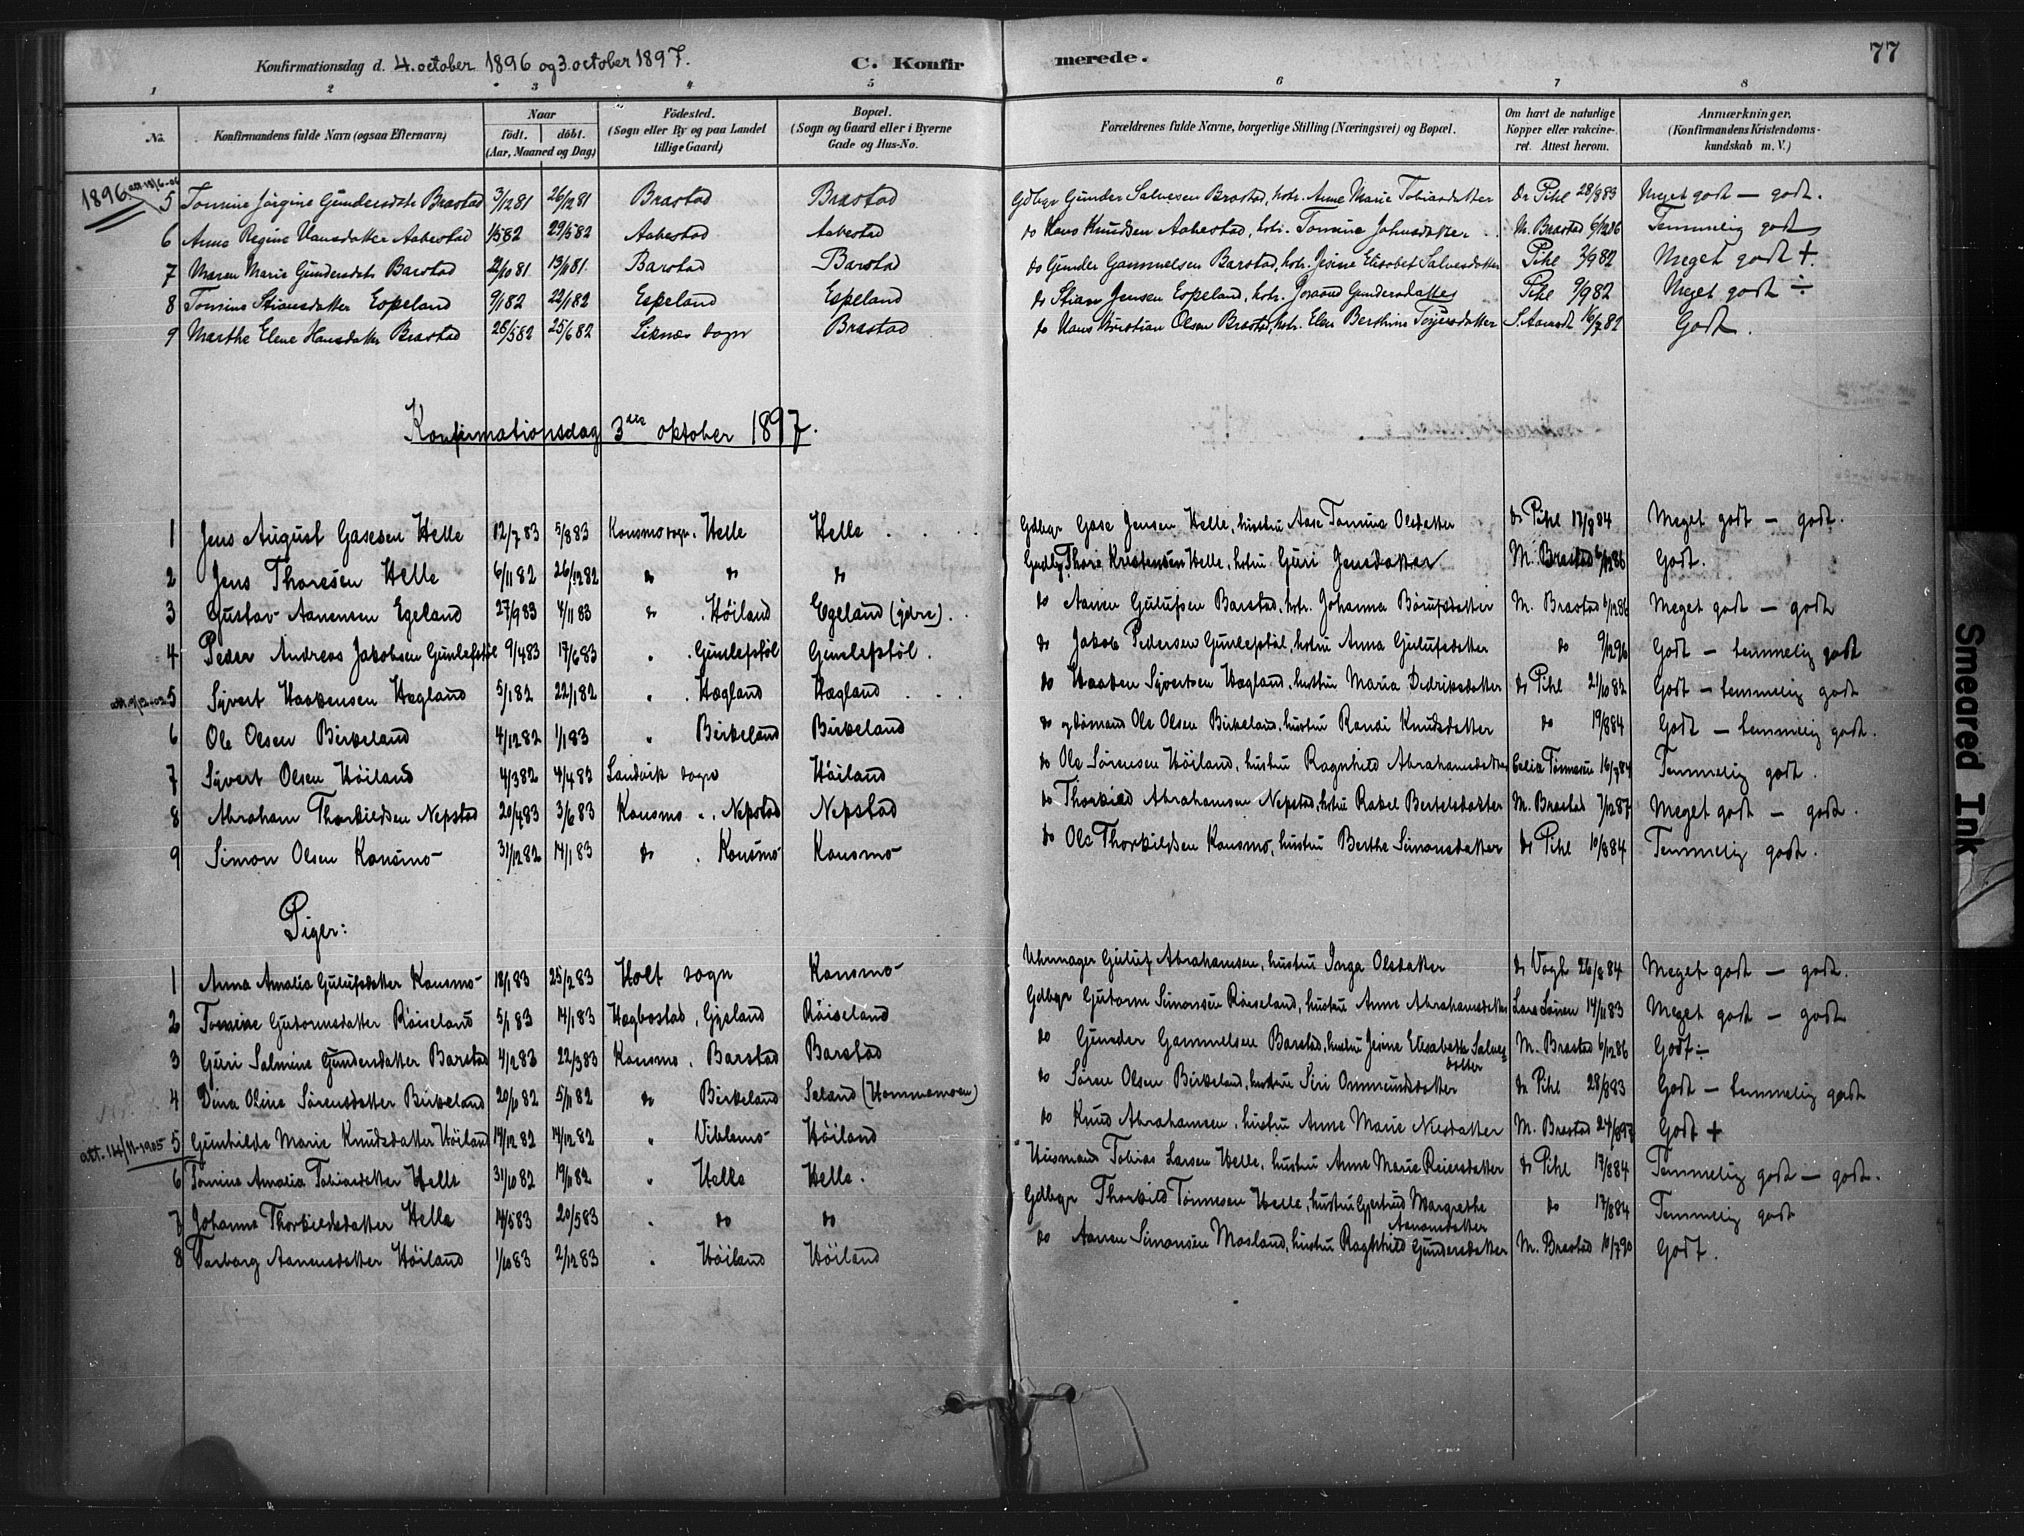 Konfirmationsdag d. 4. october 1896 og 3. october 1897. C. Konfirmerede. 77
1 2 3 4 5 6 7 8
No. Konfirmandens fulde Navn (ogsaa Efternavn) Naar født. døbt. (Aar, Maaned og Dag) Födested. (Sogn eller By og paa Landet tillige Gaard) Bopæl. (Sogn og Gaard eller i Byerne Gade og Hus-No. Forældrenes fulde Navne, borgerlige Stilling (Næringsvei) og Bopæl. Om havt de naturlige Kopper eller vakcineret. Attest herom. Anmærkninger. (Konfirmandens Kristendomskundskab m. V.)
1896.
5 Tomine Jörgine Gundersdtr Brastad 3/12 81 26/12 81 Brastad Brastad Gdbgr Gunder Salvesen Brastad, hstr. Anne Marie Tobiasdatter Dr Pihl 28/9 83 Meget godt — godt.
6 Anne Regine Hansdatter Aabestad 1/5 82 29/5 82 Aabestad Aabestad do Hans Knudsen Aabestad, hstr. Tomine Johnsdatter M. Brastad 6/12 86 Temmelig godt
7 Maren Marie Gundersdtr Barstad 2/10 81 13/11 81 Barstad Barstad do Gunder Gammelsen Barstad, hstr. Jesine Elisabet Salvesdatter Pihl 2/9 82 Meget godt +
8 Tomine Stiansdatter Espeland 9/1 82 22/1 82 Espeland Espeland do Stian Jensen Espeland, hstr. Joraand Gundersdatter Pihl 9/9 82 Meget godt ÷
9 Marthe Elene Hansdatter Brastad 28/5 82 25/6 82 Liknes sogn Brastad do Hans Kristian Olsen Brastad, hstr. Elen Berthine Torjersdatter 16/7 82 Godt.
Konfirmationsdag 3die oktober 1897.
1 Jens August Gasesen Helle 12/7 83 5/8 83 Konsmo sogn. Helle Helle Gdbgr Gase Jensen Helle, hustru Aase Tomina Olsdatter dr Pihl 17/8 84 Meget godt — godt.
2 Jens Thoresen Helle 6/11 82 26/12 82 do do do Gadbg Thore Kristensen Helle, hstru Guri Jensdatter M. Brastad 6/12 86 Godt.
3 Gustav Aanensen Egeland 27/9 83 4/11 83 do Höiland Egeland (ydre). do Aanen Gulufsen Barstad, hstr. Johanna Börufsdatter M. Brastad 6/12 86 Meget godt — godt
4 Peder Andreas Jakobsen Gunlefstöl 9/4 83 17/6 83 " Gunlefstöl Gunlefstöl. do Jakob Pedersen Gunlefstöl, hstru Anna Gulufsdatter do 9/12 96 Godt — temmelig godt
5 Syvert Haakensen Hægland 5/1 82 22/1 82 " Hægland Hægland do Haaken Syvertsen Hægland, hustru Maria Didriksdatter dr Pihl 21/10 82 Godt — temmelig godt
6 Ole Olsen Birkeland 4/12 82 1/1 83 " Birkeland Birkeland do og sömand Ole Olsen Birkeland, hustru Randi Knudsdatter do 19/8 84 Godt — temmelig godt.
7 Syvert Olsen Höiland 4/3 82 4/4 83 Landvik sogn Höiland do Ole Sörensen Höiland, hustru Ragnhild Abrahamsdatter Celia Tönnesen 16/9 84 Temmelig godt.
8 Abraham Thorkildsen Nepstad 20/4 83 3/6 83 Konsmo ". Nepstad Nepstad do Thorkild Abrahamsen Nepstad, hstru Rakel Bertelsdatter M. Brastad 7/12 87 Meget godt — godt.
9 Simon Olsen Konsmo 31/12 82 14/1 83 do . Konsmo Konsmo do Ole Thorkildsen Konsmo, hustru Berthe Simonsdatter dr Pihl 10/8 84 Temmelig godt.
Piger:
1 Anna Amalia Gulufsdatter Konsmo 18/1 83 25/2 83 Holt sogn Konsmo Uhrmager Guluf Abrahamsen, hustru Inga Olsdatter dr Vogt 26/8 84 Meget godt — godt.
2 Tomine Gutormsdatter Röiseland 5/1 83 14/1 83 Hægbostad, Gysland Röiseland Gdbgr Gutorm Simonsen Röiseland, hustru Anne Abrahamsdatter Lars Larsen 14/11 83 Meget godt — godt
3 Guri Salmine Gundersdatter Barstad 4/2 83 22/3 83 Konsmo. Barstad Barstad do Gunder Gammelsen Barstad, hustru Jesine Elisabeth Salvesdatter M. Brastad 6/12 86 Godt ÷
4 Dina Oline Sörensdatter Birkeland 20/9 82 5/11 82 do Birkeland Seland (Hommemoen) do Sören Olsen Birkeland, hustru Siri Ommundsdatter dr Pihl 28/8 83 Godt — temmelig godt
att. 14/11-1905 5 Gunhilde Marie Knudsdatter Höiland 14/12 82 14/12 82 " Viblemo Höiland do Knud Abrahamsen, hustru Anne Marie Nilsdatter M. Brastad 24/8 97 Godt +
6 Tomine Amalia Tobiasdatter Helle 31/10 82 19/11 82 " Helle Helle. Husmand Tobias Larsen Helle, hustru Anne Marie Reiersdatter dr Pihl 17/8 84 Temmelig godt — godt.
7 Johanne Thorkildsdatter Helle 14/5 83 20/5 83 " do do Gdbgr Thorkild Tönnesen Helle, hustru Gjertrud Margrethe Aanonsdatter do 17/8 84 Temmelig godt
8 Tarborg Aanensdatter Höiland 1/10 83 2/12 83 " Höiland Höiland do Aanen Simonsen Mosland, hustru Ragnhild Gundersdatter M. Brastad 10/7 90 Godt.
Smeared Ink